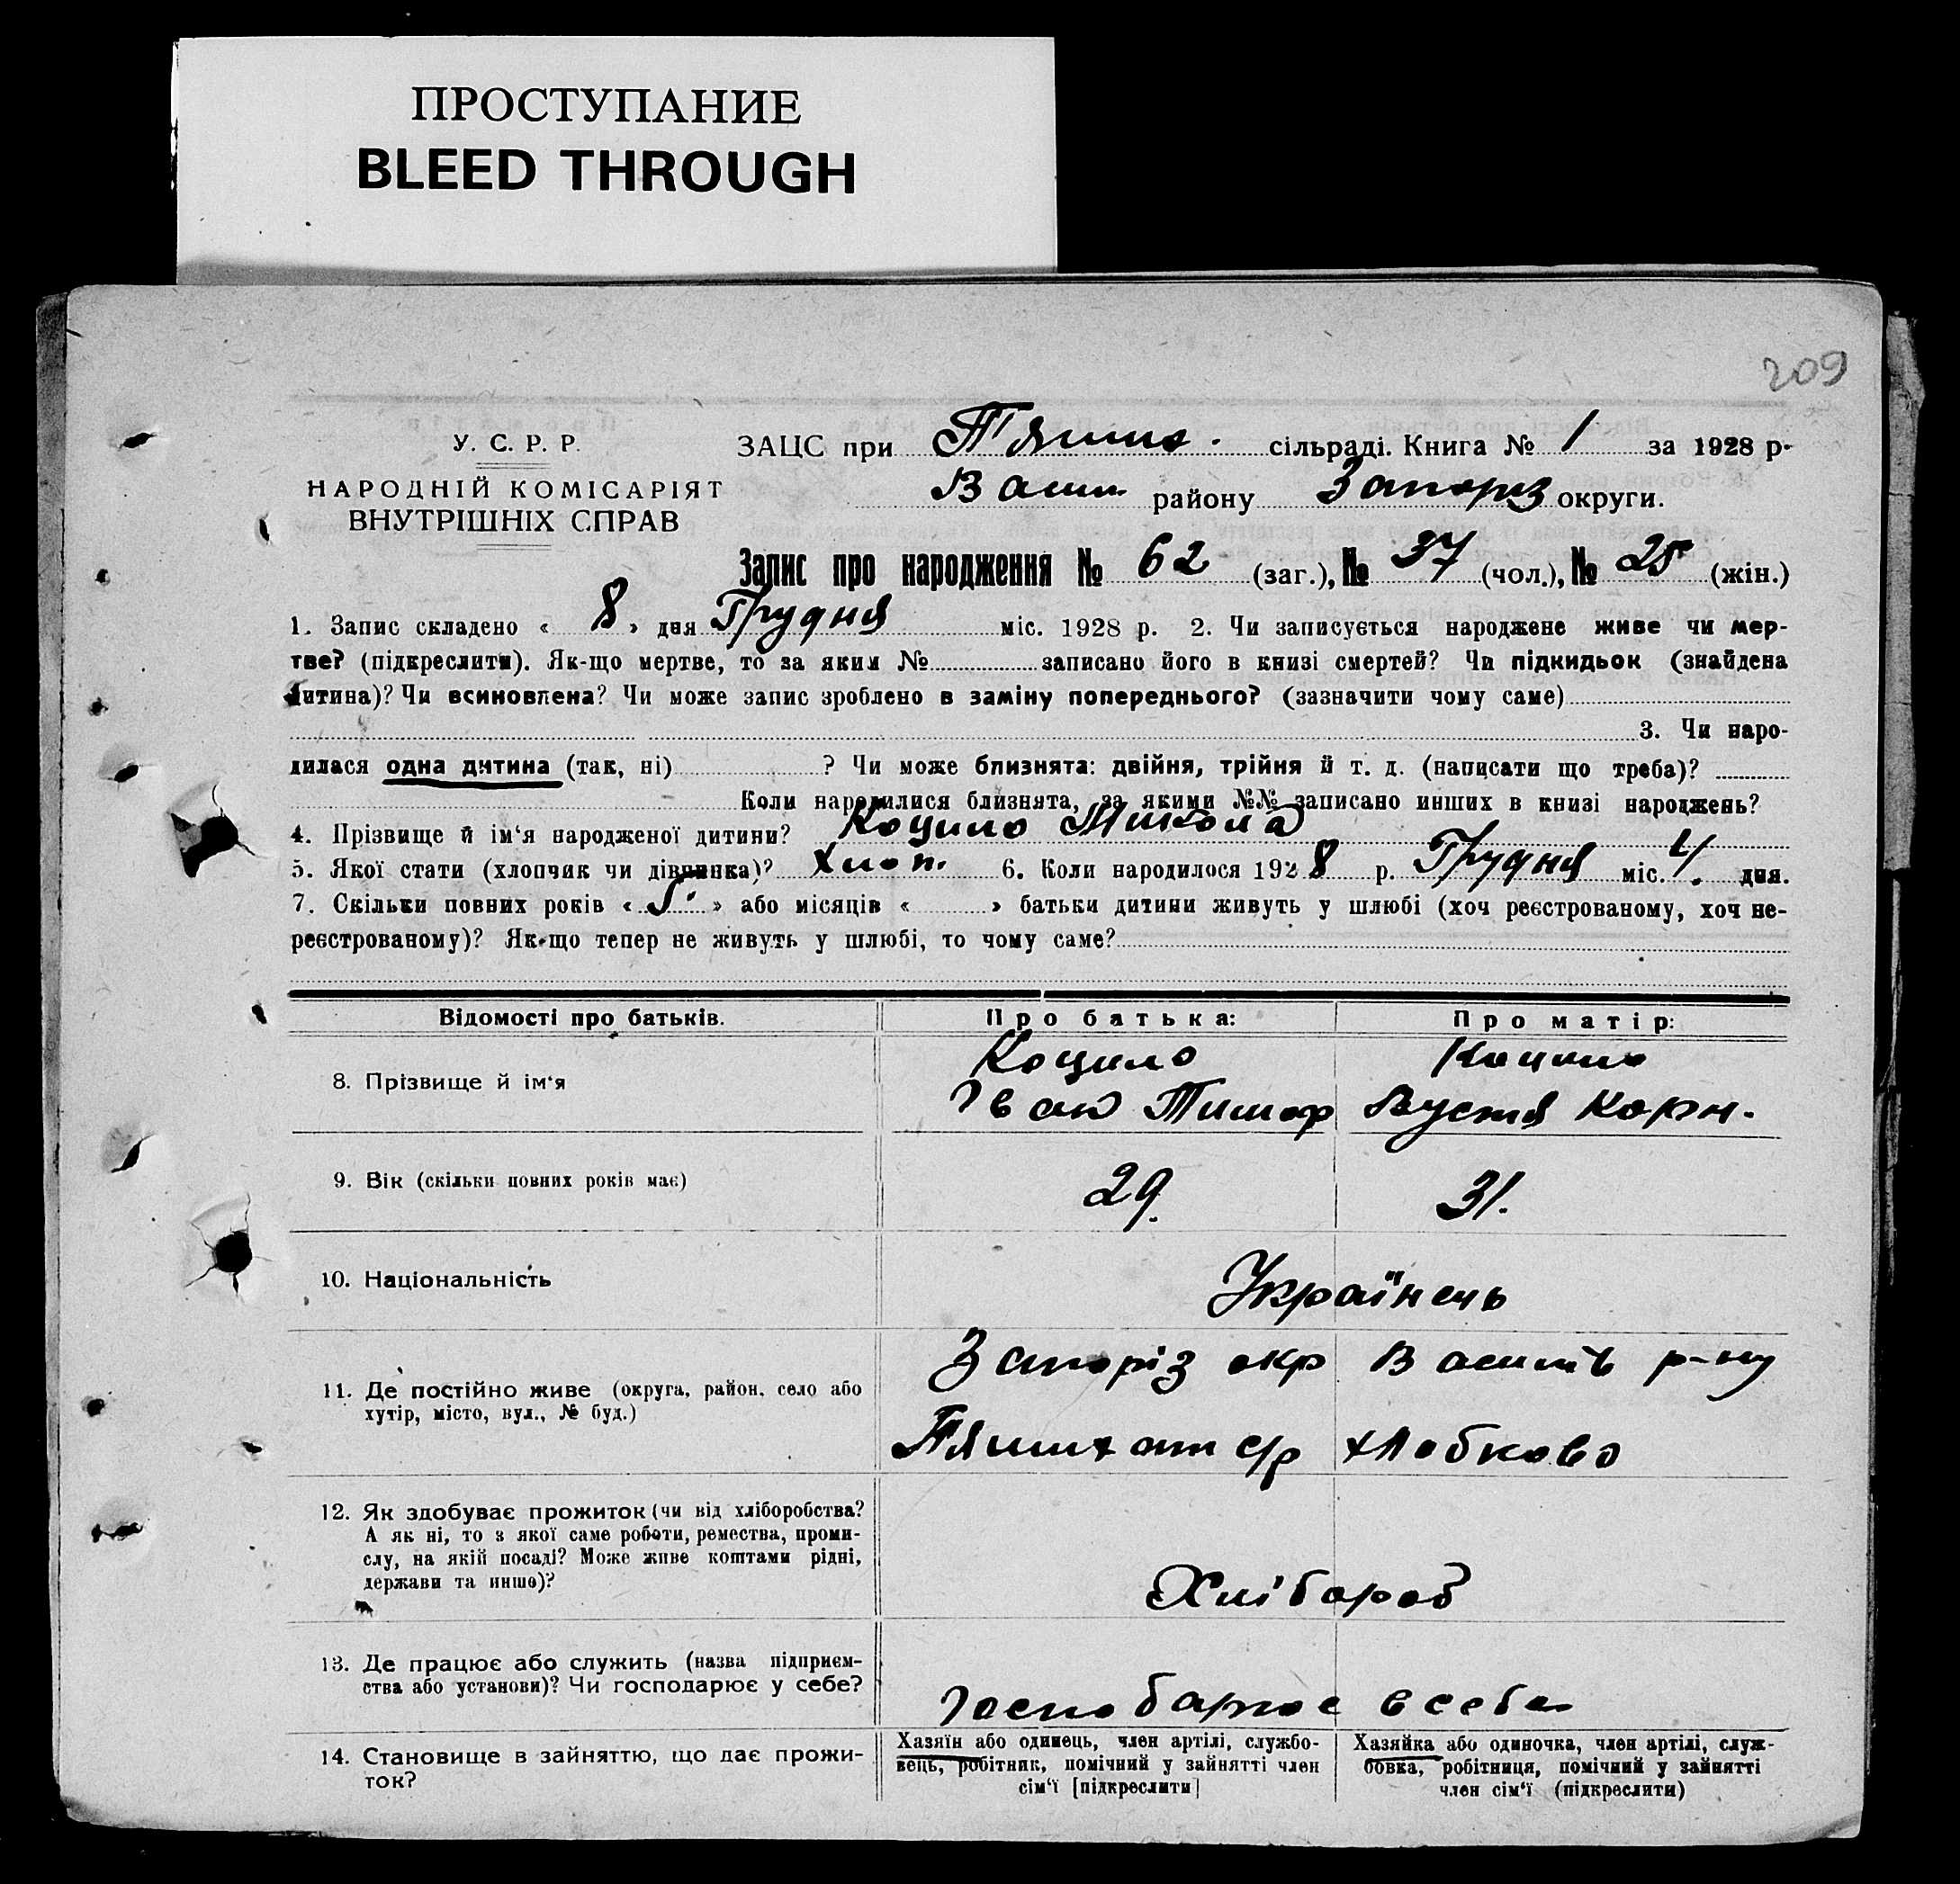 ПРОСТУПАНИЕ
BLEED THROUGH
209
У. С. Р. Р.
НАРОДНІЙ КОМІСАРІЯТ
ВНУТРІШНІХ СПРАВ
ЗАЦС при П'яших. сільраді. Книга № 1 за 1928 р.
Васил. району Запоріз округи.
Запис про народження № 62 (заг.), № 37 (чол.), № 25 (жін.)
1. Запис складено « 8 » дня Грудня міс. 1928 р. 2. Чи записується народжене живе чи мер-
тве? (підкреслити). Як-що мертве, то за яким № записано його в книзі смертей? Чи підкидьок (знайдена
дитина)? Чи всиновлена? Чи може запис зроблено в заміну попереднього? (зазначити чому саме)
3. Чи наро-
дилася одна дитина (так, ні) ? Чи може близнята: двійня, трійня й т. д. (написати що треба)?
Коли народилися близнята, за якими №№ записано инших в книзі народжень?
4. Прізвище й ім'я народженої дитини? Коцило Микола
5. Якої стати (хлопчик чи дівчинка)? хлоп. 6. Коли народилося 1928 р. Грудня міс. 4. дня.
7. Скільки повних років « 5. » або місяців « » батьки дитини живуть у шлюбі (хоч реєстрованому, хоч не-
реєстрованому)? Як-що тепер не живуть у шлюбі, то чому саме?
Відомості про батьків. Про батька: Про матір:
8. Прізвище й ім'я Коцило Коцило
Іван Тимоф Вустя Корн.
9. Вік (скільки повних років має) 29. 31.
10. Національність Українець
11. Де постійно живе (округа, район, село або
хутір, місто, вул., № буд.)
Запоріз окр Василів р-ну
Пяшихат с/р х Лобково
12. Як здобуває прожиток (чи від хліборобства?
А як ні, то з якої саме роботи, ремества, проми-
слу, на якій посаді? Може живе коштами рідні,
держави та инше)?
Хлібороб
13. Де працює або служить (назва підприєм-
ства або установи)? Чи господарює у себе?
Господарює в себе
14. Становище в зайняттю, що дає прожи-
ток?
Хазяїн або одинець, член артілі, службо-
вець, робітник, помічний у зайнятті член
сім'ї [підкреслити]
Хазяйка або одиночка, член артілі, служ-
бовка, робітниця, помічний у зайнятті
член сім'ї (підкреслити)